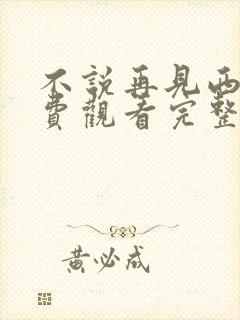 不說再見西
費觀看完整
黃必成